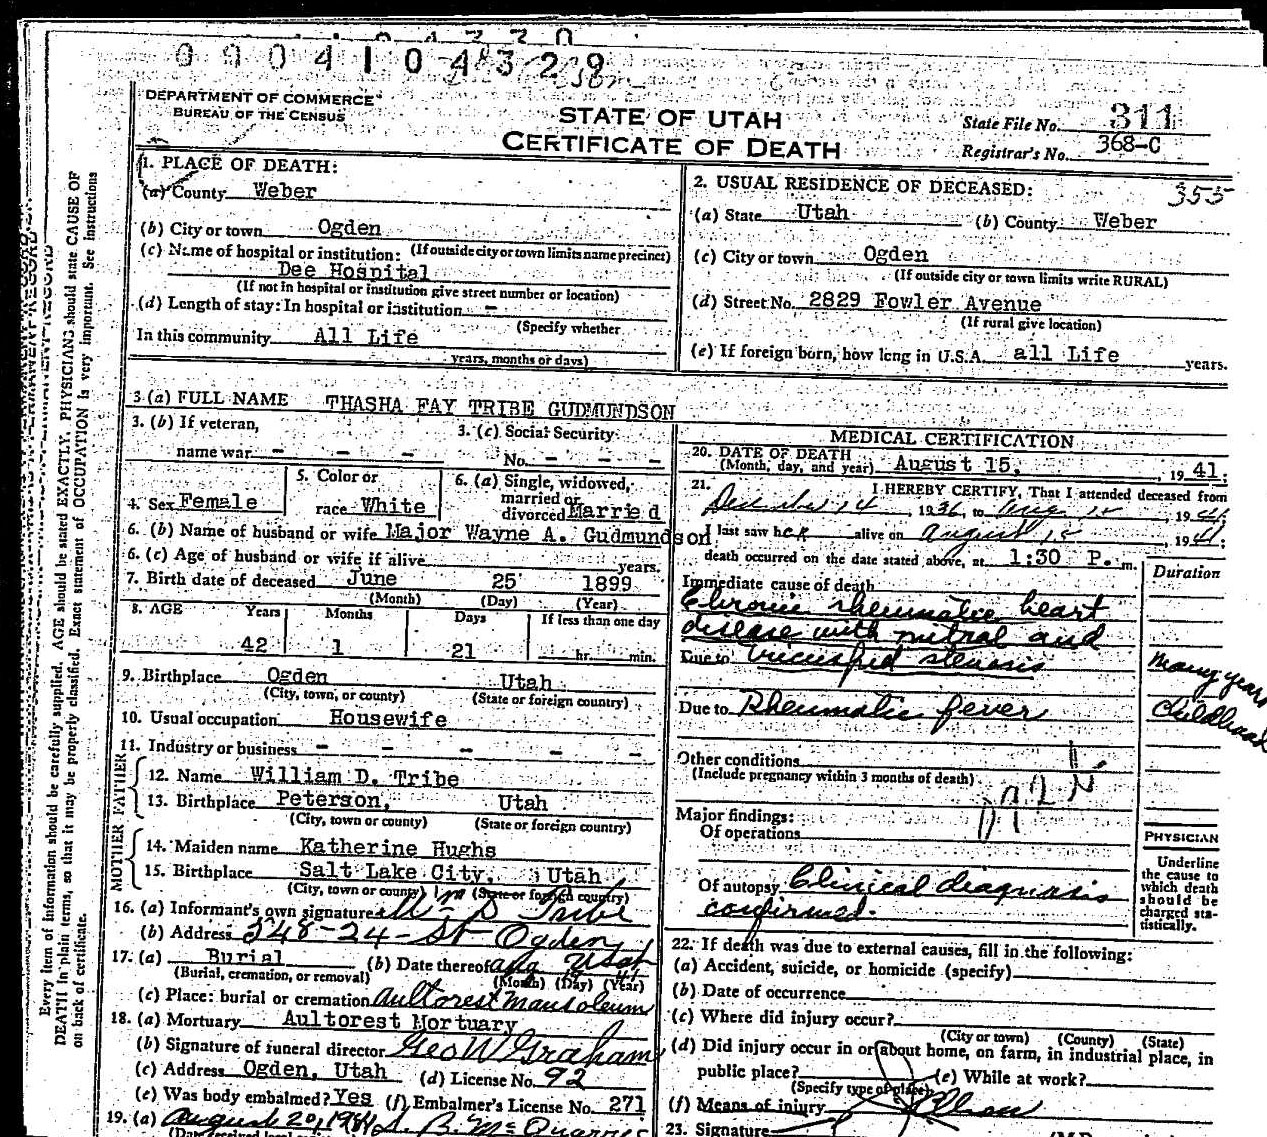 0904104329
DEPARTMENT OF COMMERCE
BUREAU OF THE CENSUS
STATE OF UTAH
CERTIFICATE OF DEATH
State File No. 311
Registrar's No. 368-C
1. PLACE OF DEATH:
(a) County Weber
(b) City or town Ogden
(c) Name of hospital or institution: (If outside city or town limits name precinct)
Dee Hospital
(If not in hospital or institution give street number or location)
(d) Length of stay: In hospital or institution -
(Specify whether
In this community All Life
years, months or days)
2. USUAL RESIDENCE OF DECEASED: 355
(a) State Utah (b) County Weber
(c) City or town Ogden
(If outside city or town limits write RURAL)
(d) Street No. 2829 Fowler Avenue
(If rural give location)
(e) If foreign born, how long in U.S.A. all Life years.
3 (a) FULL NAME THASHA FAY TRIBE GUDMUNDSON
3. (b) If veteran,
name war - - -
3. (c) Social Security
No. - - -
4. Sex Female
5. Color or
race White
6. (a) Single, widowed,
married or
divorced Married
6. (b) Name of husband or wife Major Wayne A. Gudmundson
6. (c) Age of husband or wife if alive years.
7. Birth date of deceased June 25 1899
(Month) (Day) (Year)
8. AGE Years Months Days If less than one day
42 1 21 hr. min.
9. Birthplace Ogden Utah
(City, town, or county) (State or foreign country)
10. Usual occupation Housewife
11. Industry or business - - - - -
FATHER
12. Name William D. Tribe
13. Birthplace Peterson, Utah
(City, town or county) (State or foreign country)
MOTHER
14. Maiden name Katherine Hughs
15. Birthplace Salt Lake City, Utah
(City, town or county) (State or foreign country)
16. (a) Informant's own signature Wm D Tribe
(b) Address 348-24-St Ogden Utah
17. (a) Burial (b) Date thereof Aug
(Burial, cremation, or removal) (Month) (Day) (Year)
(c) Place: burial or cremation Aultorest Mausoleum
18. (a) Mortuary Aultorest Mortuary
(b) Signature of funeral director Geo W Graham
(c) Address Ogden, Utah (d) License No. 92
(e) Was body embalmed? Yes (f) Embalmer's License No. 271
19. (a) August 20, 1941
MEDICAL CERTIFICATION
20. DATE OF DEATH
(Month, day, and year) August 15, 1941:
21. I HEREBY CERTIFY, That I attended deceased from
December 14, 1936, to Aug 15, 1941
I last saw her alive on August 15, 1941;
death occurred on the date stated above, at 1:30 P. m.
Duration
Immediate cause of death
Chronic rheumatic heart
disease with mitral and
Due to tricuspid stenosis many years
Due to Rheumatic fever Childhood
Other conditions
(Include pregnancy within 3 months of death)
Major findings:
Of operations
Of autopsy Clinical diagnosis
confirmed.
PHYSICIAN
Underline
the cause to
which death
should be
charged sta-
tistically.
22. If death was due to external causes, fill in the following:
(a) Accident, suicide, or homicide (specify)
(b) Date of occurrence
(c) Where did injury occur?
(City or town) (County) (State)
(d) Did injury occur in or about home, on farm, in industrial place, in
public place? (e) While at work?
(Specify type of place)
(f) Means of injury
23. Signature
Every item of information should be carefully supplied. AGE should be stated EXACTLY. PHYSICIANS should state CAUSE OF
DEATH in plain terms, so that it may be properly classified. Exact statement of OCCUPATION is very important. See Instructions
on back of certificate.